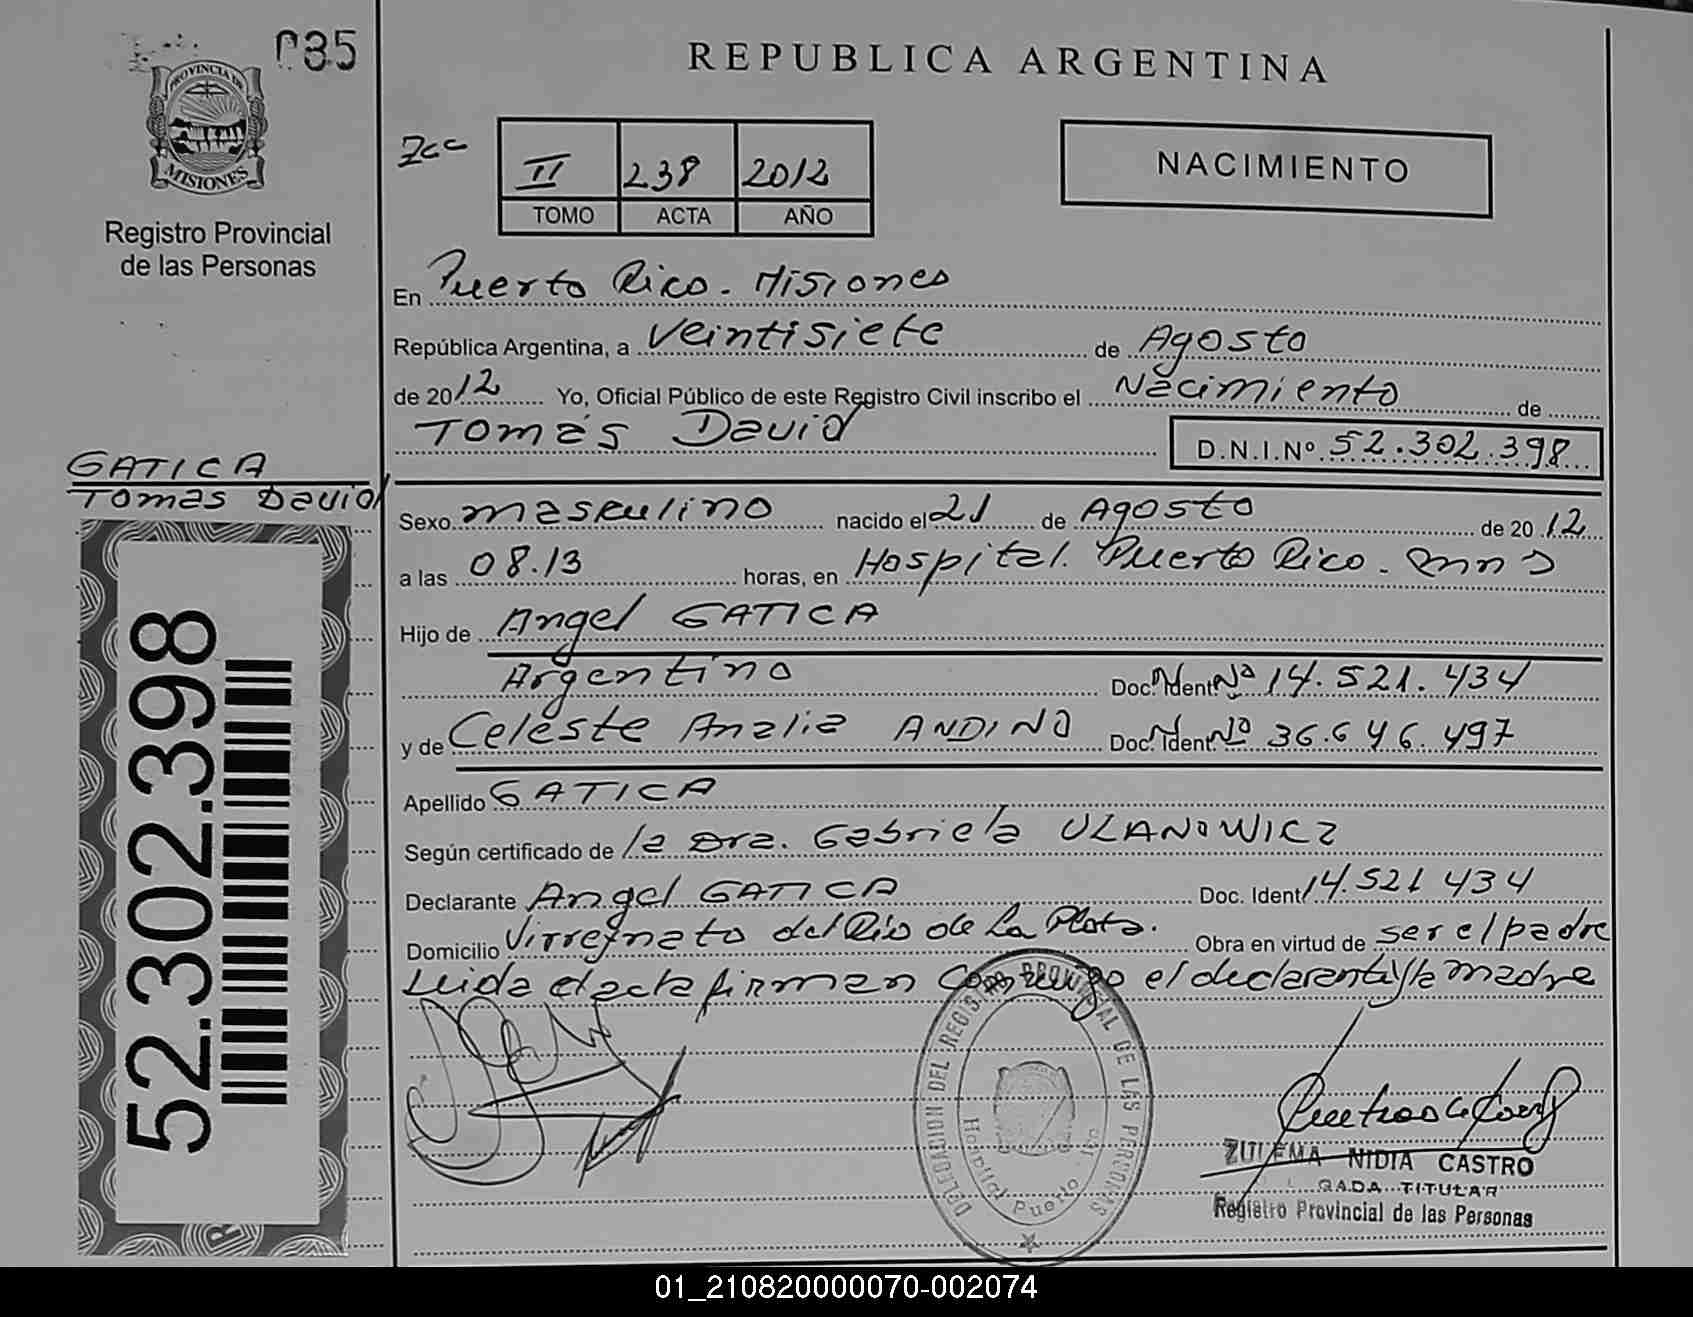 035
PROVINCIA DE
MISIONES
Registro Provincial
de las Personas
REPUBLICA ARGENTINA
II 238 2012
TOMO ACTA AÑO
NACIMIENTO
En Puerto Rico. Misiones
República Argentina, a Veintisiete de Agosto
de 2012 Yo, Oficial Público de este Registro Civil inscribo el Nacimiento de
Tomás David D.N.I.Nº 52.302.398
GATICA
Tomas David
Sexo masculino nacido el 21 de Agosto de 2012
a las 08.13 horas, en Hospital. Puerto Rico. Mnes
Hijo de Angel GATICA
Argentino Doc. Ident Nº 14.521.434
y de Celeste Analia ANDINO Doc. Ident Nº 36.646.497
Apellido GATICA
Según certificado de la Dra. Gabriela ULANOWICZ
Declarante Angel GATICA Doc. Ident 14.521 434
Domicilio Virreynato del Río de La Plata. Obra en virtud de ser el padre
Leida el acta firman conmigo el declarante y la madre
52.302.398
DELEGACION DEL REGISTRO PROVINCIAL DE LAS PERSONAS
Hospital Puerto
ZULEMA NIDIA CASTRO
TITULAR
Registro Provincial de las Personas
01_210820000070-002074